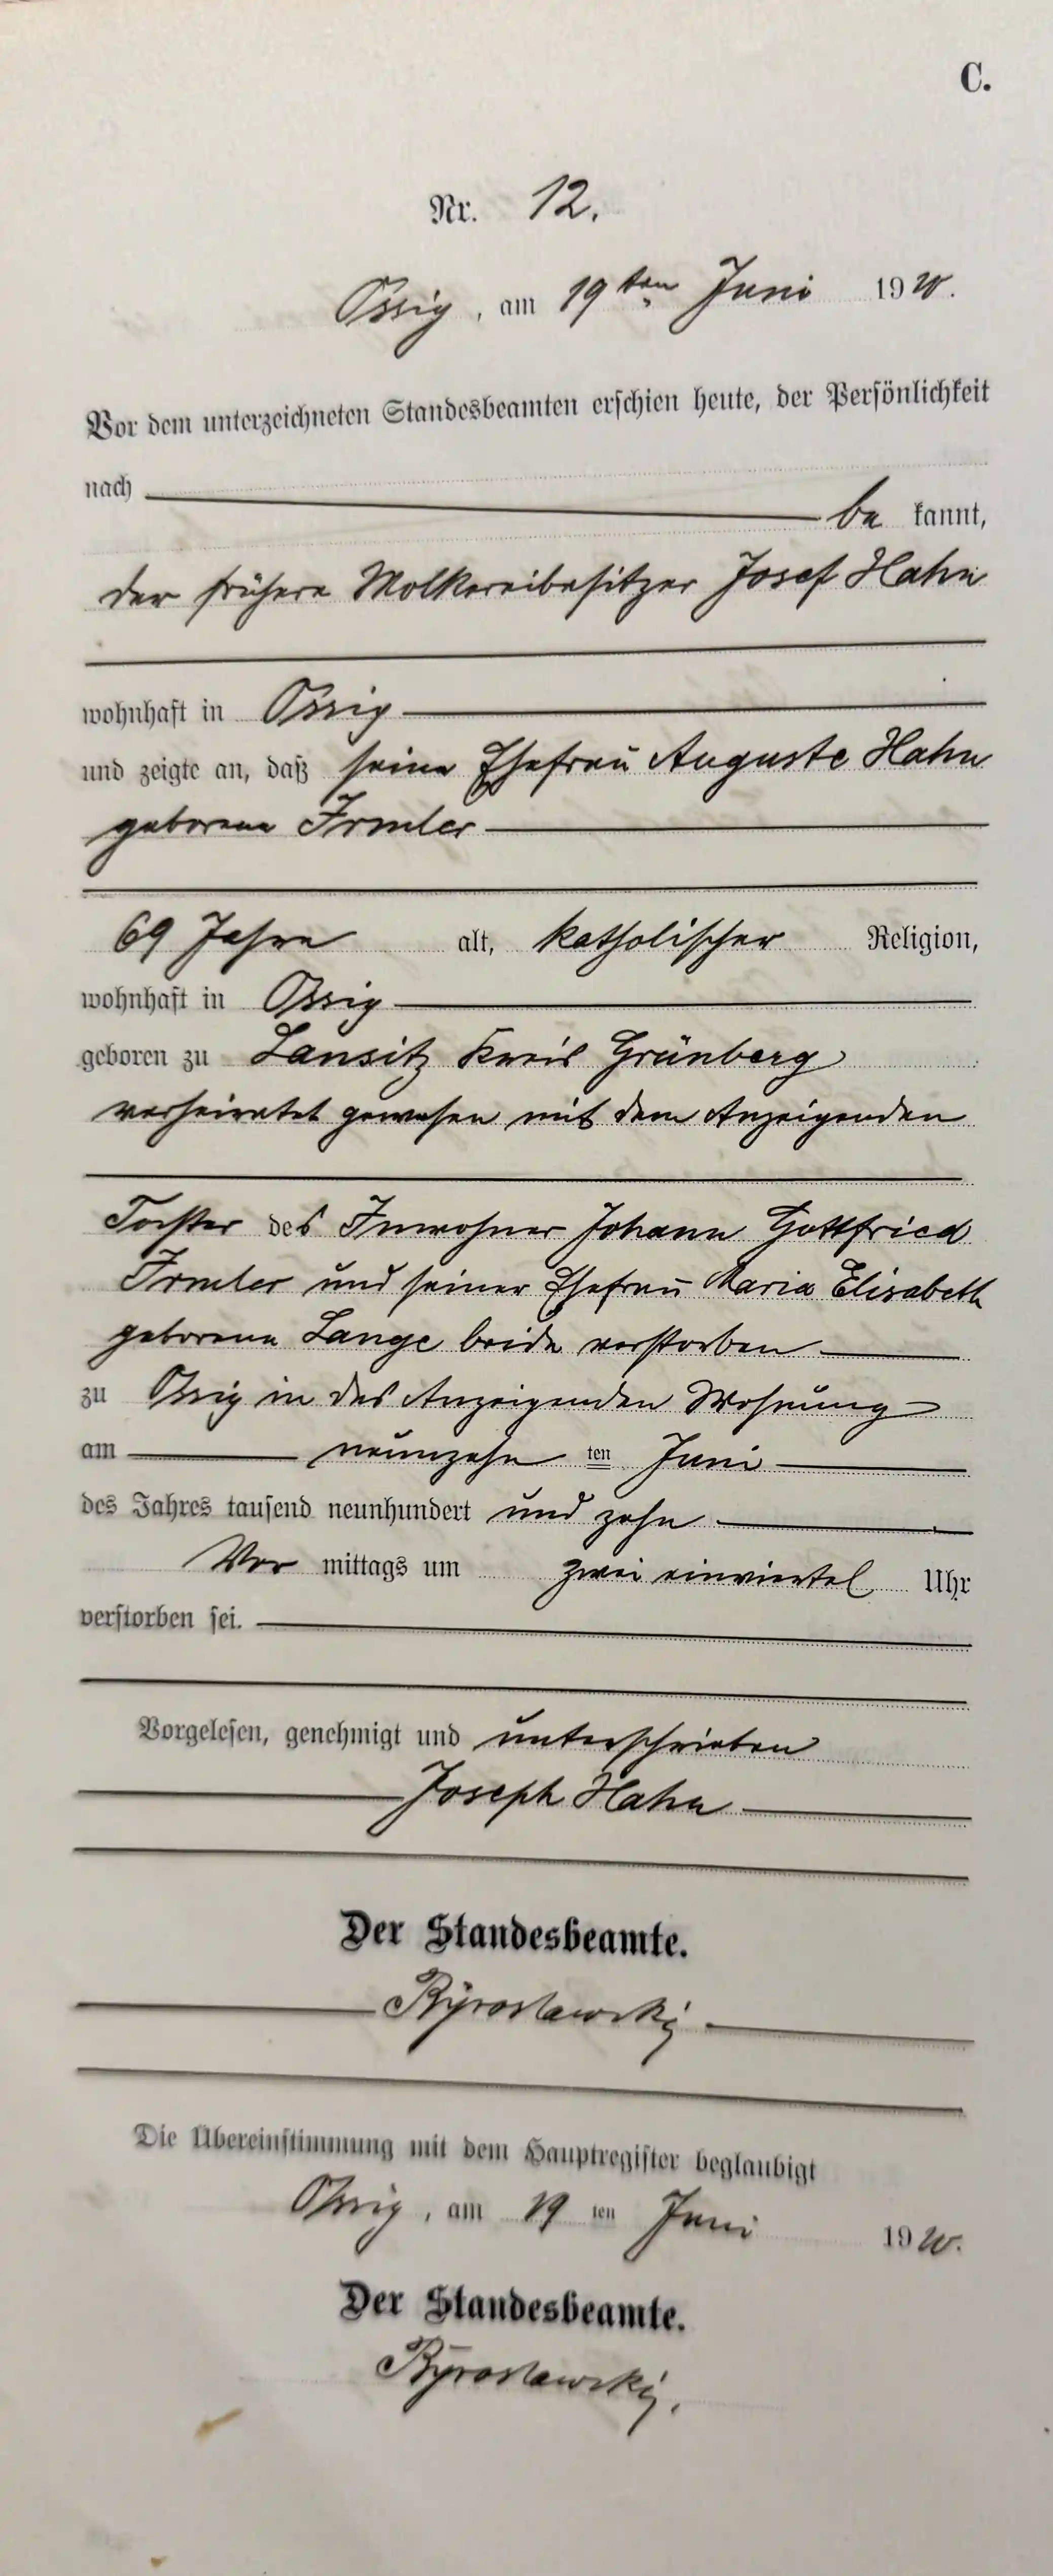 C.
Nr. 12.
Ossig, am 19ten Juni 1910.
Vor dem unterzeichneten Standesbeamten erschien heute, der Persönlichkeit
nach be kannt,
der frühere Molkereibesitzer Josef Hahn
wohnhaft in Ossig
und zeigte an, daß seine Ehefrau Auguste Hahn
geborene Irmler
69 Jahre alt, katholischer Religion,
wohnhaft in Ossig
geboren zu Lansitz Kreis Grünberg
verheiratet gewesen mit dem Anzeigenden
Tochter des Inwohner Johann Gottfried
Irmler und seiner Ehefrau Maria Elisabeth
geborene Lange beide verstorben
zu Ossig in des Anzeigenden Wohnung
am neunzehn ten Juni
des Jahres tausend neunhundert und zehn
Vor mittags um zwei einviertel Uhr
verstorben sei.
Vorgelesen, genehmigt und unterschrieben
Joseph Hahn
Der Standesbeamte.
Die Übereinstimmung mit dem Hauptregister beglaubigt
Ossig, am 19 ten Juni 1910.
Der Standesbeamte.